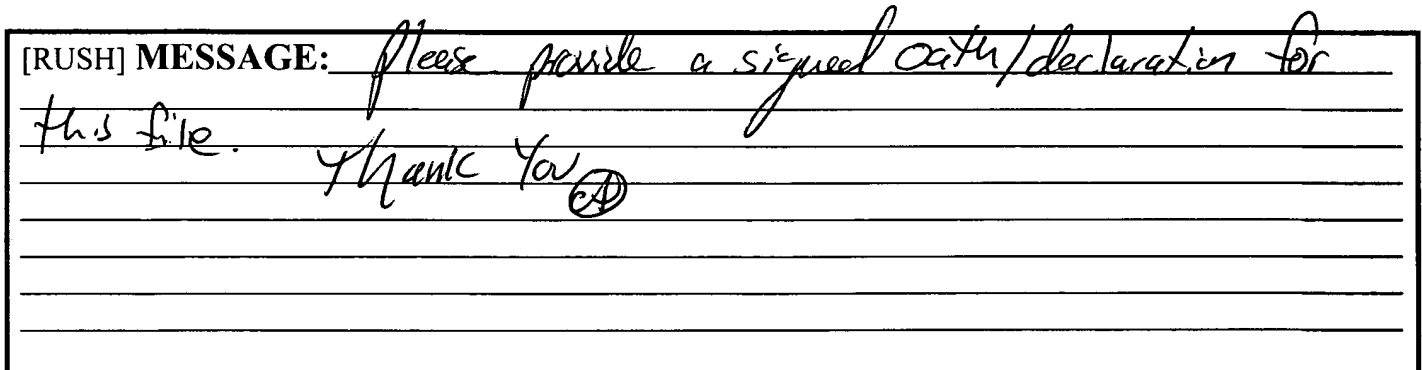 [RUSH] MESSAGE: Please provide a signed Oath/declaration for
this file.
Thank You